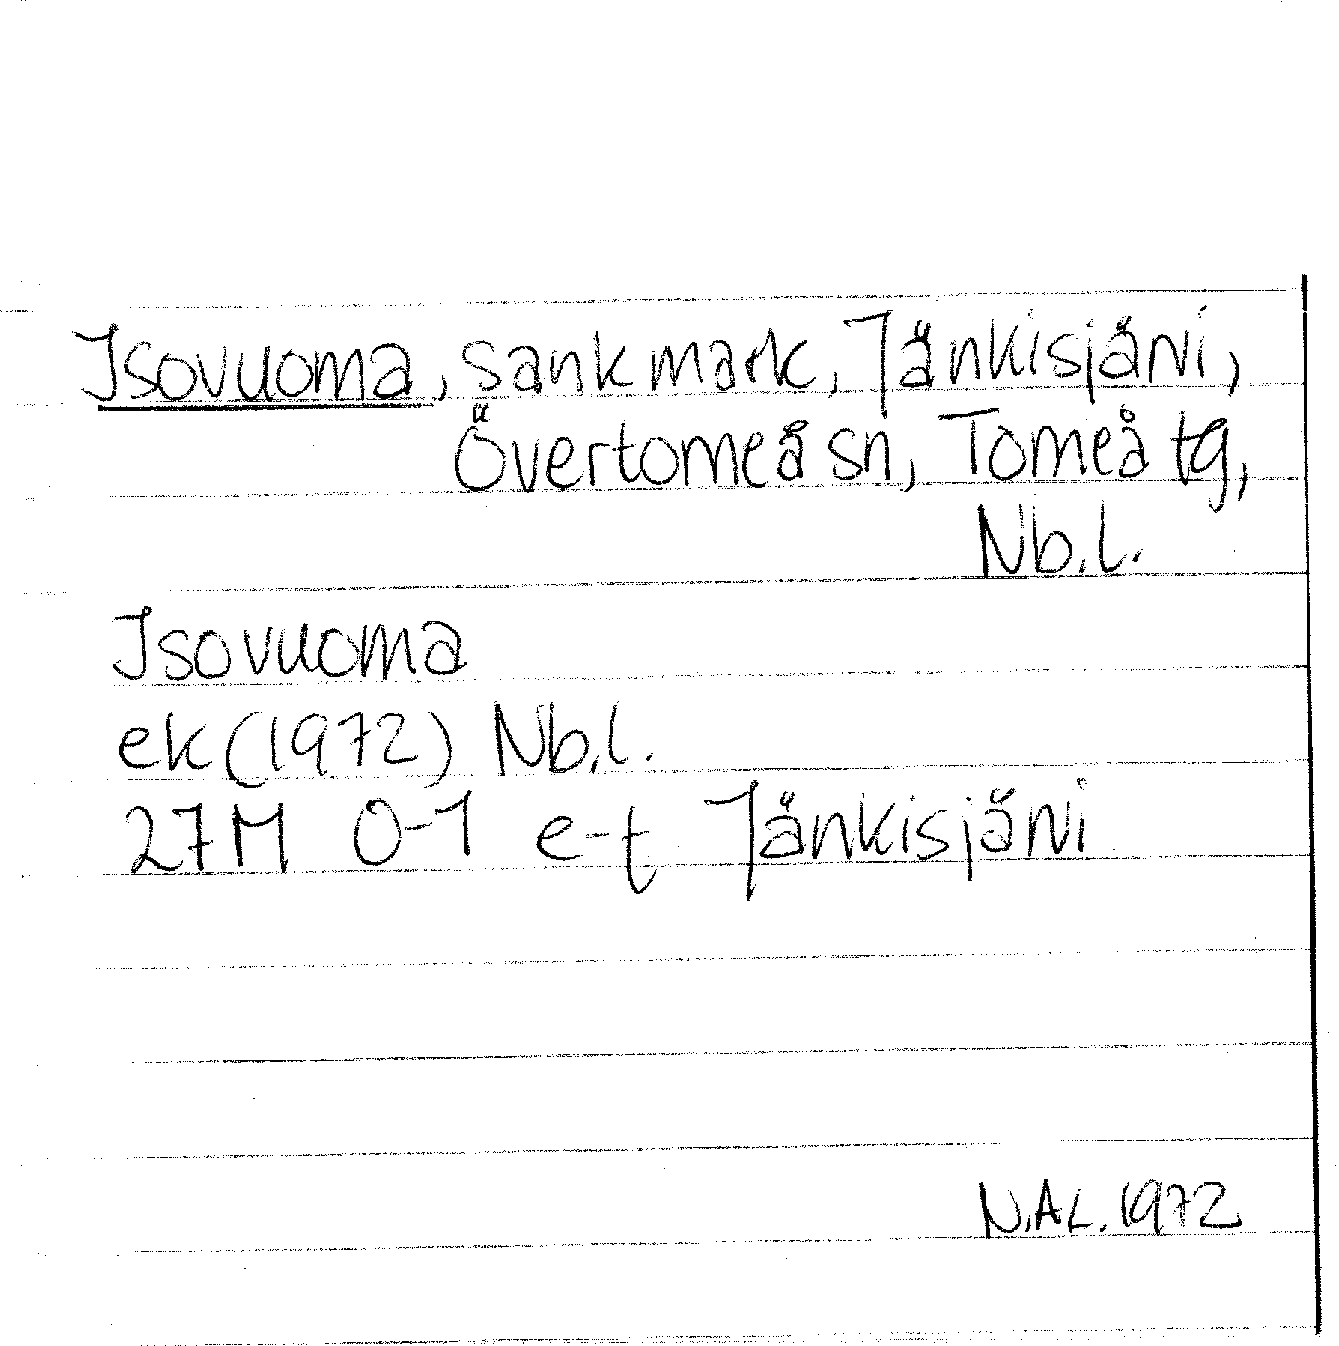 Isovuoma, sankmark, Jänkisjärvi,
Övertorneå sn, Torneå tg,
Nb.l.
Isovuoma
ek (1972) Nb.l.
27M 0-1 e-f Jänkisjärvi
N.AL. 1972